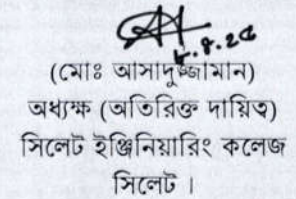 ৮.৪.২৫
(মোঃ আসাদুজ্জামান)
অধ্যক্ষ (অতিরিক্ত দায়িত্ব)
সিলেট ইঞ্জিনিয়ারিং কলেজ
সিলেট।